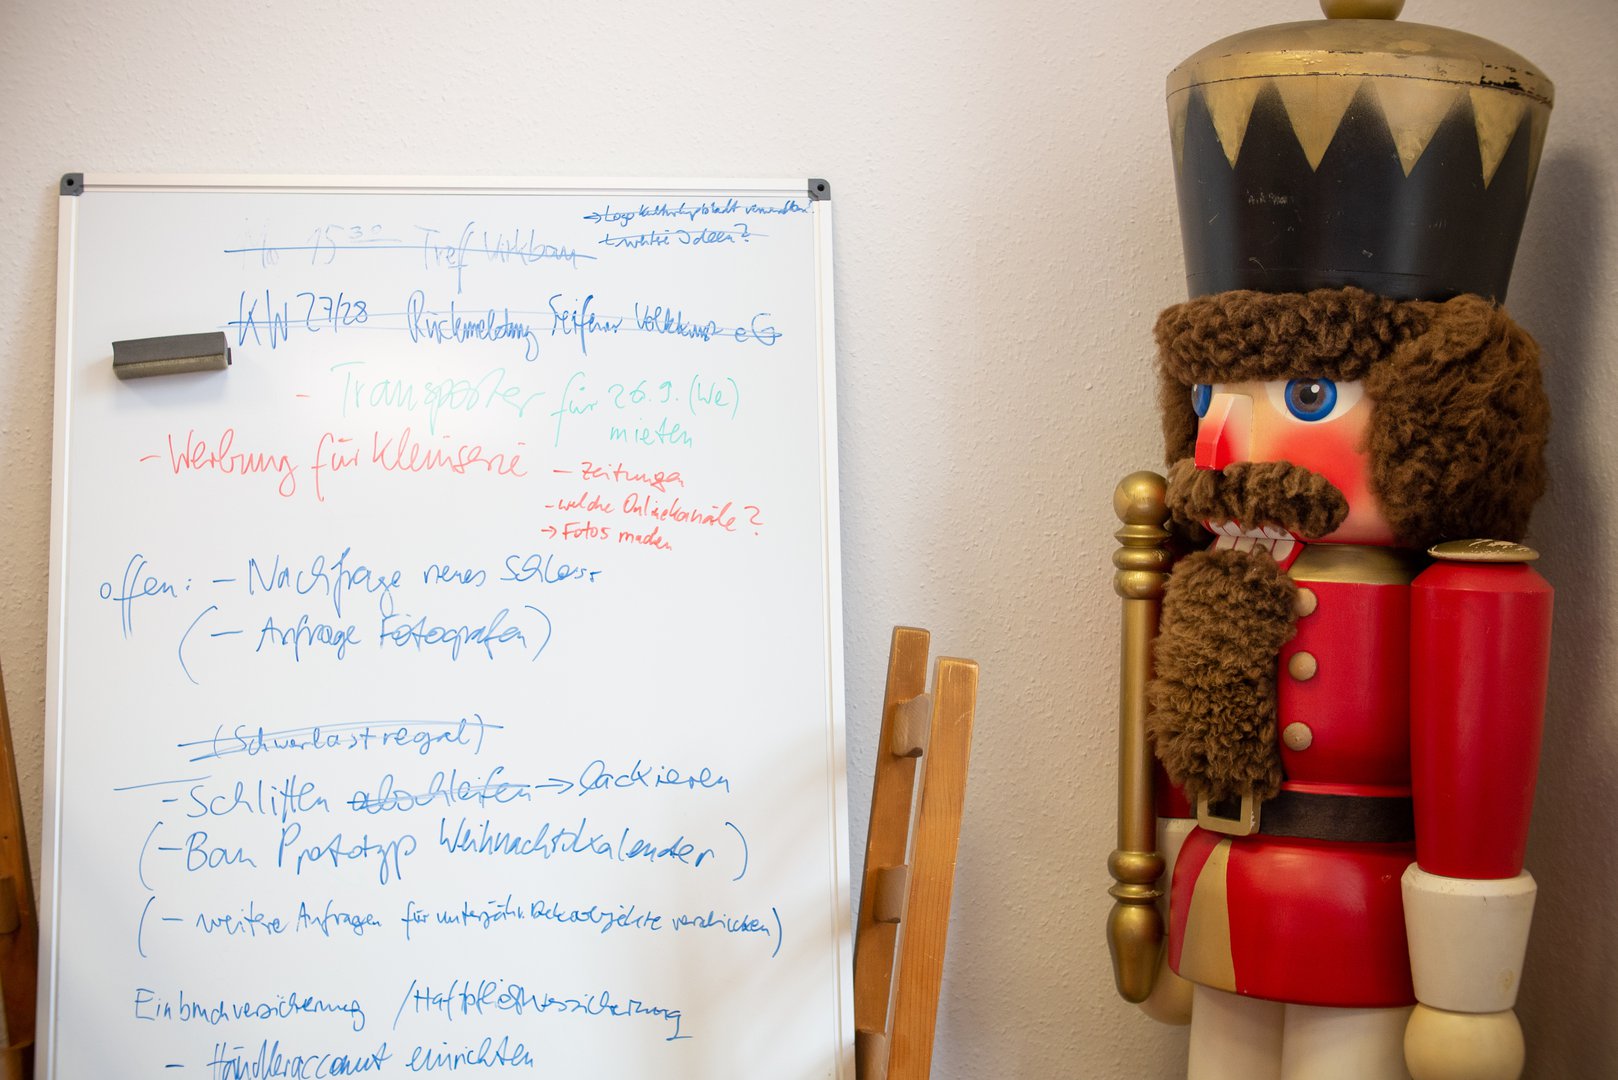 → Logo verwenden?
→ weitere Ideen?
Mo 15 30 Treff Virkbau
KW 27/28 Rückmeldung Seiffener Volkskunst eG
- Transporter für 26.9. (We)
mieten
- Werbung für Kleinserie
- Zeitungen
- welche Onlinekanäle?
→ Fotos machen
offen: - Nachfrage neues Schloss
(- Anfrage Fotografen)
(Schwerlastregal)
- Schlitten abschleifen → lackieren
(- Bau Prototyp Weihnachtskalender)
(- weitere Anfragen für unterjähr. Dekoobjekte verschicken)
Einbruchversicherung / Haftpflichtversicherung
- Händleraccount einrichten